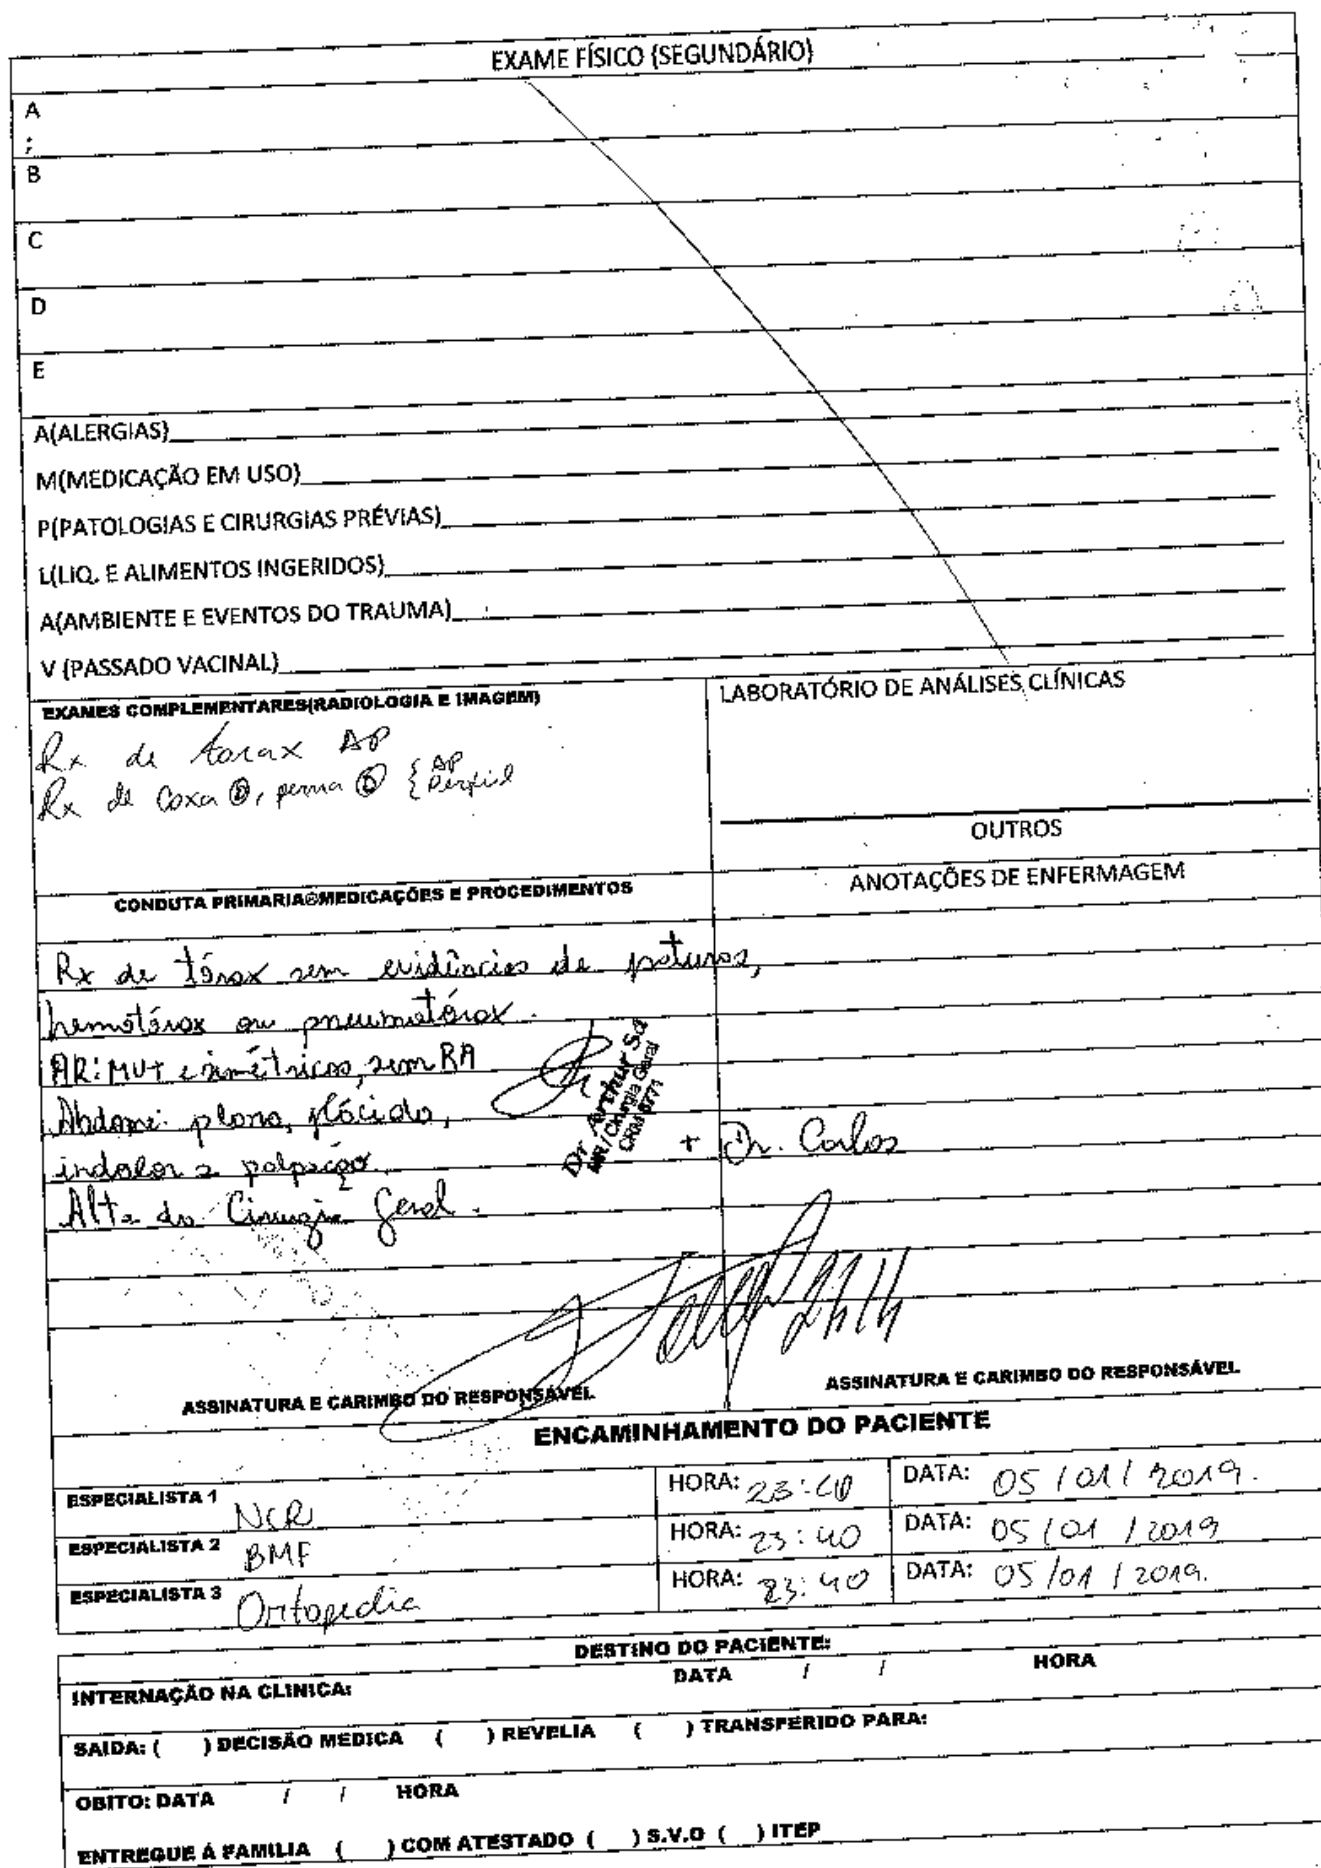 EXAME FÍSICO (SEGUNDÁRIO)
A
:
B
C
D
E
A(ALERGIAS)
M(MEDICAÇÃO EM USO)
P(PATOLOGIAS E CIRURGIAS PRÉVIAS)
L(LIQ. E ALIMENTOS INGERIDOS)
A(AMBIENTE E EVENTOS DO TRAUMA)
V (PASSADO VACINAL)
EXAMES COMPLEMENTARES(RADIOLOGIA E IMAGEM)
Rx de torax AP
Rx de Coxa D, perna D { AP
Perfil
LABORATÓRIO DE ANÁLISES CLÍNICAS
OUTROS
CONDUTA PRIMARIA@MEDICAÇÕES E PROCEDIMENTOS
ANOTAÇÕES DE ENFERMAGEM
Rx de tórax sem evidências de
hemotórax ou pneumotórax.
AR: MV+ e simétricos, sem RA
Abdome: plano, plácido,
indolor a palpação.
Alta da Cirurgia Geral.
Dr. Arthur
MR / Cirurgia Geral
CRM 8771
+ Dr. Carlos
ASSINATURA E CARIMBO DO RESPONSÁVEL
ASSINATURA E CARIMBO DO RESPONSÁVEL
ENCAMINHAMENTO DO PACIENTE
ESPECIALISTA 1 NCR HORA: 23:40 DATA: 05/01/2019.
ESPECIALISTA 2 BMF HORA: 23:40 DATA: 05/01/2019
ESPECIALISTA 3 Ortopedia HORA: 23:40 DATA: 05/01/2019.
DESTINO DO PACIENTE:
INTERNAÇÃO NA CLINICA: DATA / / HORA
SAIDA: ( ) DECISÃO MEDICA ( ) REVELIA ( ) TRANSFERIDO PARA:
OBITO: DATA / / HORA
ENTREGUE Á FAMILIA ( ) COM ATESTADO ( ) S.V.O ( ) ITEP